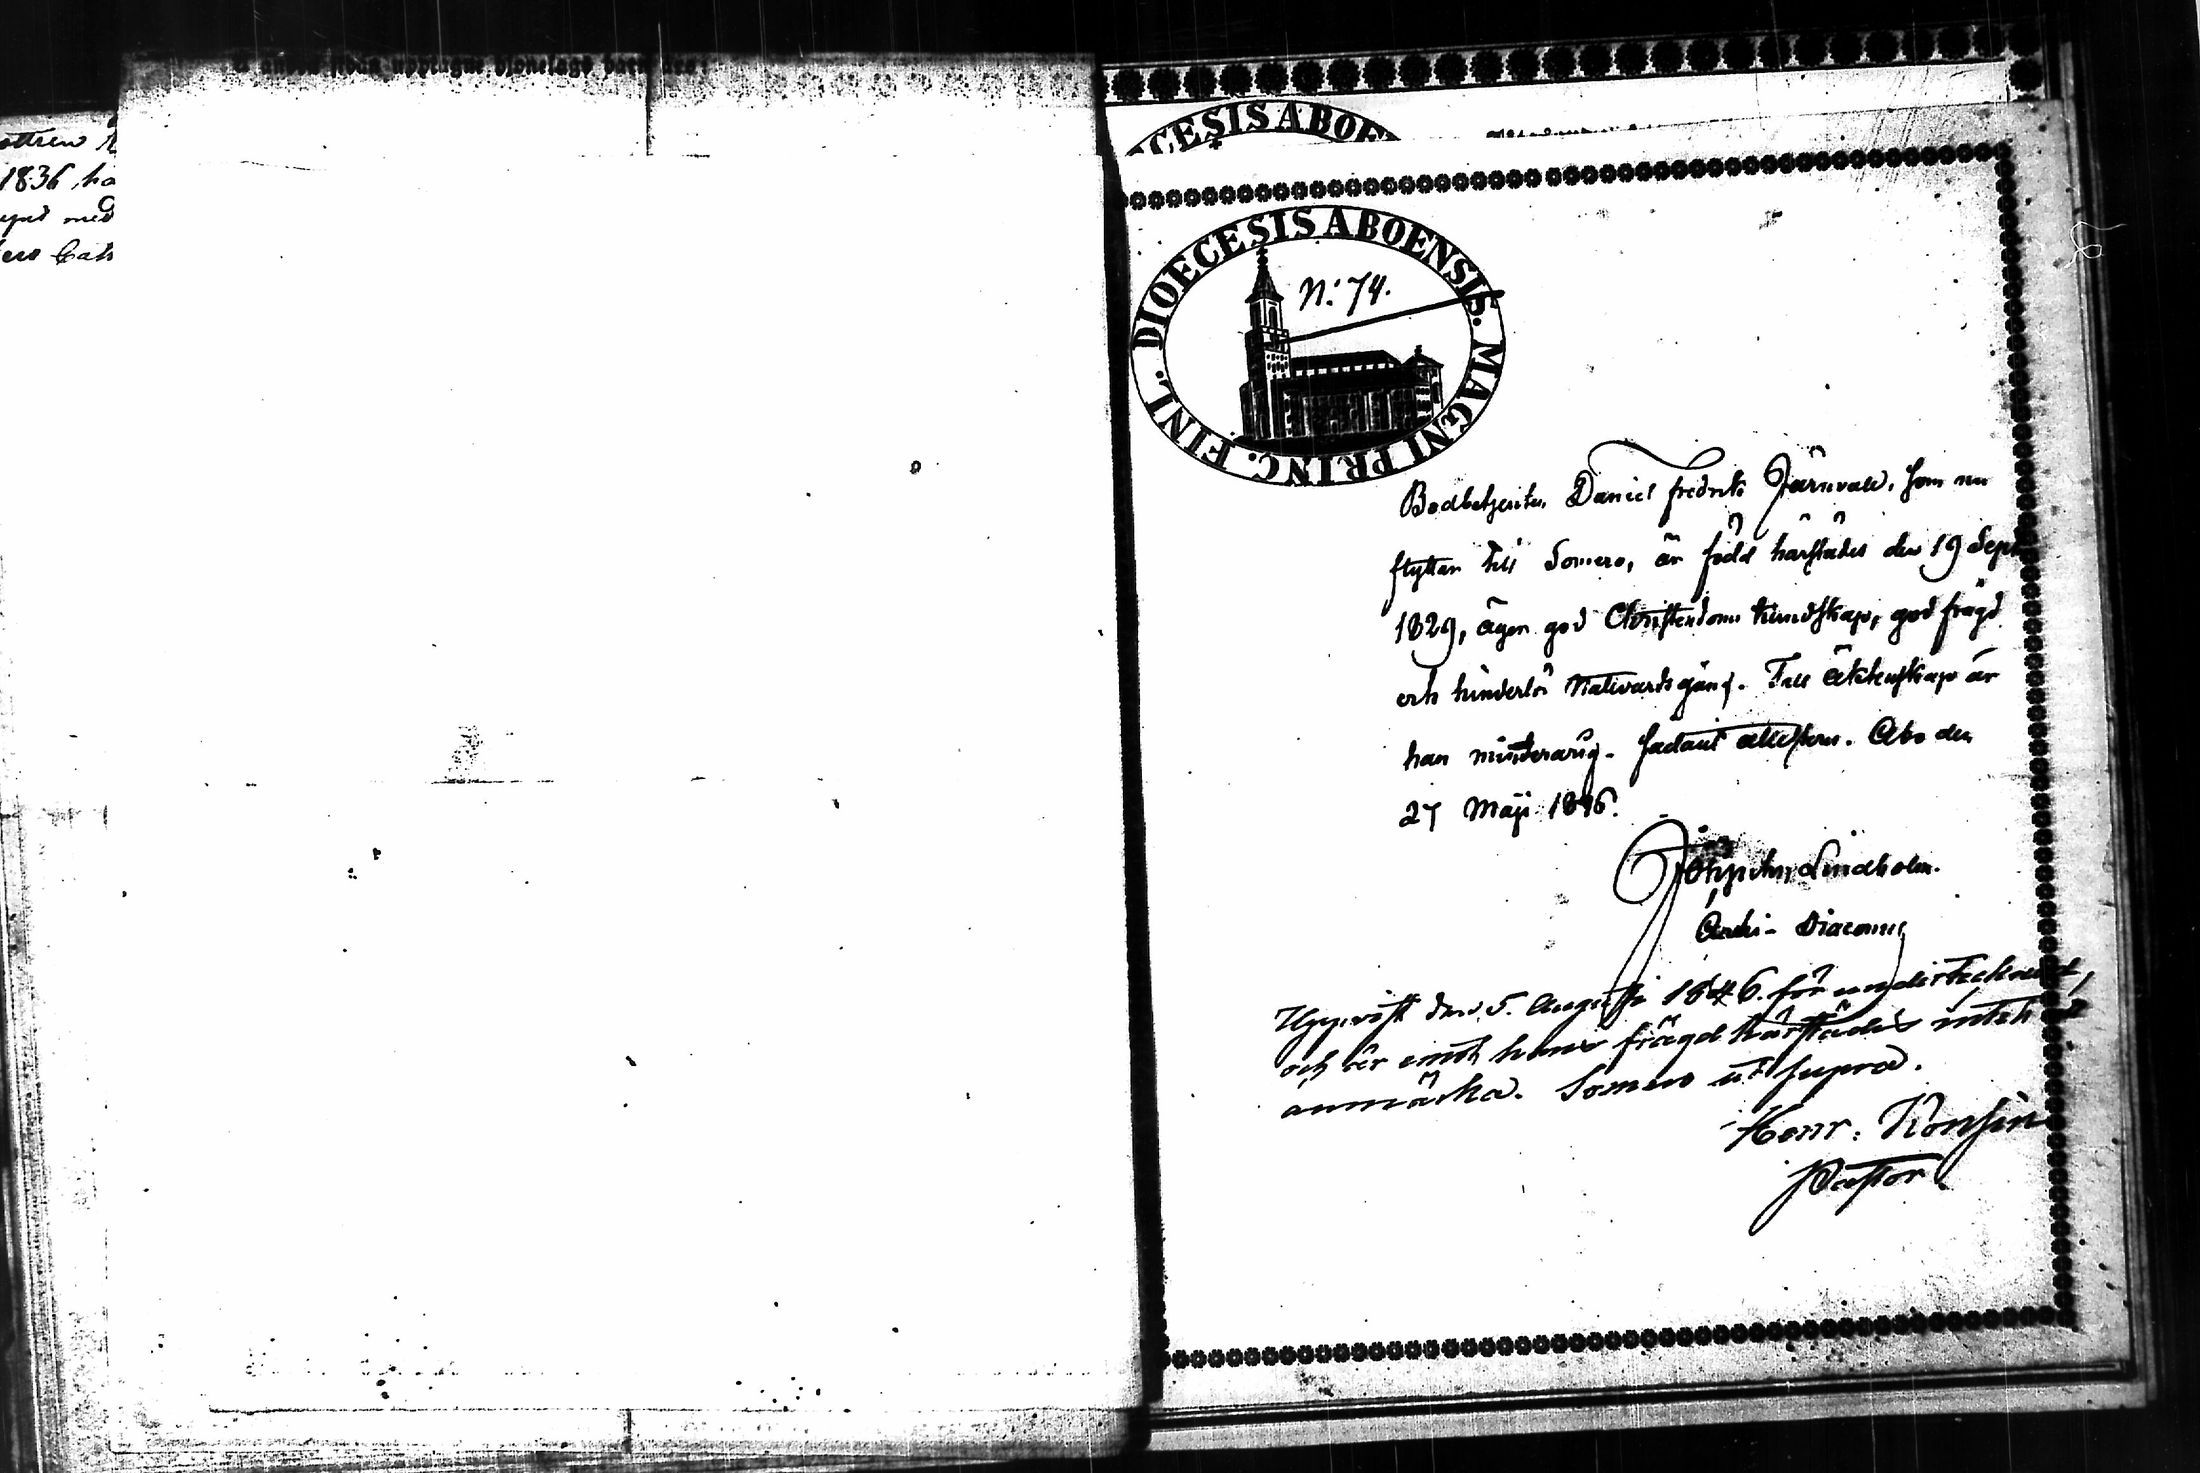 1836 ha
med
CESIS ABOE
DIOECESIS ABOENSIS. MAGNI PRINC. FINL.
N:o 74.
Bodbetjenten Daniel Fredrik Järnvall, som nu
flyttar till Somero, är född härstädes den 19 Sept
1829, äger god Christendoms kundskap, god frägd
och hinderlös Nattvardsgång. Till äktenskap är
han minderårig. Sådant attesteras. Åbo den
27 Maji 1846.
Lindholm.
Archi-Diaconus
Uppvist den 5. Augusti 1846. för undertecknad,
och är emot hans frägd härstädes intet at
anmärka. Somero ut supra.
Henr: Konsin
Pastor